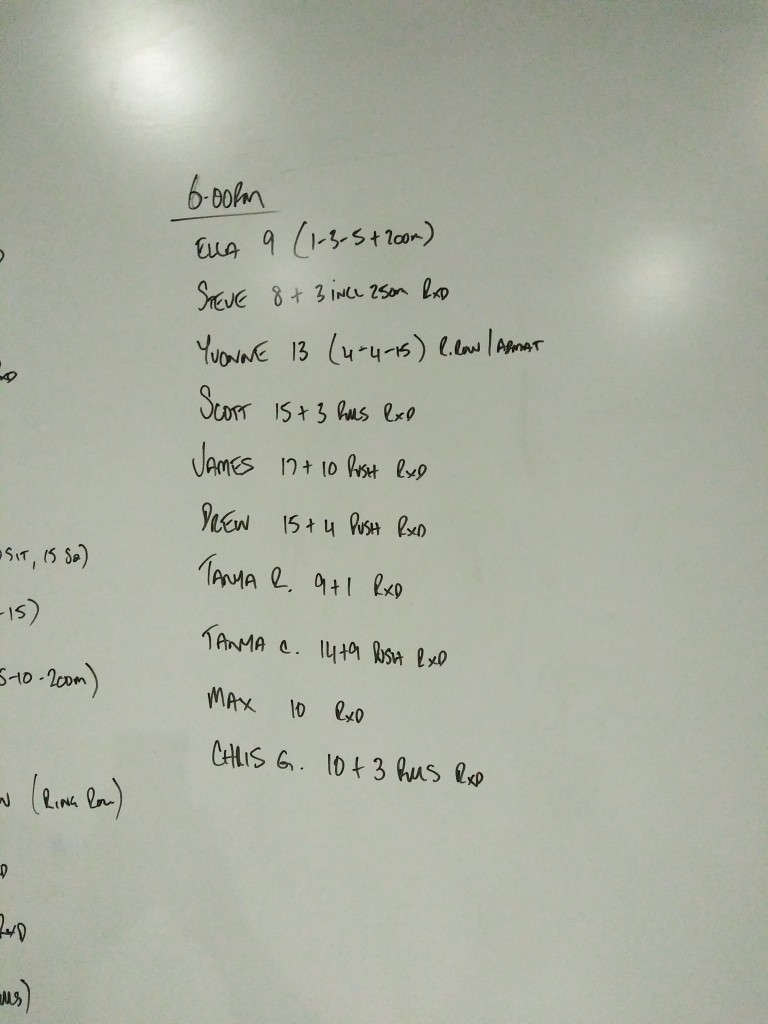 6-00PM
ELLA 9 (1-3-5+200m)
STEVE 8 + 3 INCL 250m RXD
YVONNE 13 (4-4-15) R.ROW / ABMAT
SCOTT 15 + 3 PULLS RXD
JAMES 17 + 10 PUSH RXD
DREW 15 + 4 PUSH RXD
TANYA R. 9+1 RXD
TANYA C. 14+9 PUSH RXD
MAX 10 RXD
CHRIS G. 10 + 3 PULLS RXD
SIT, 15 SQ)
-15)
5-10-200m)
(RING ROW)
RXD